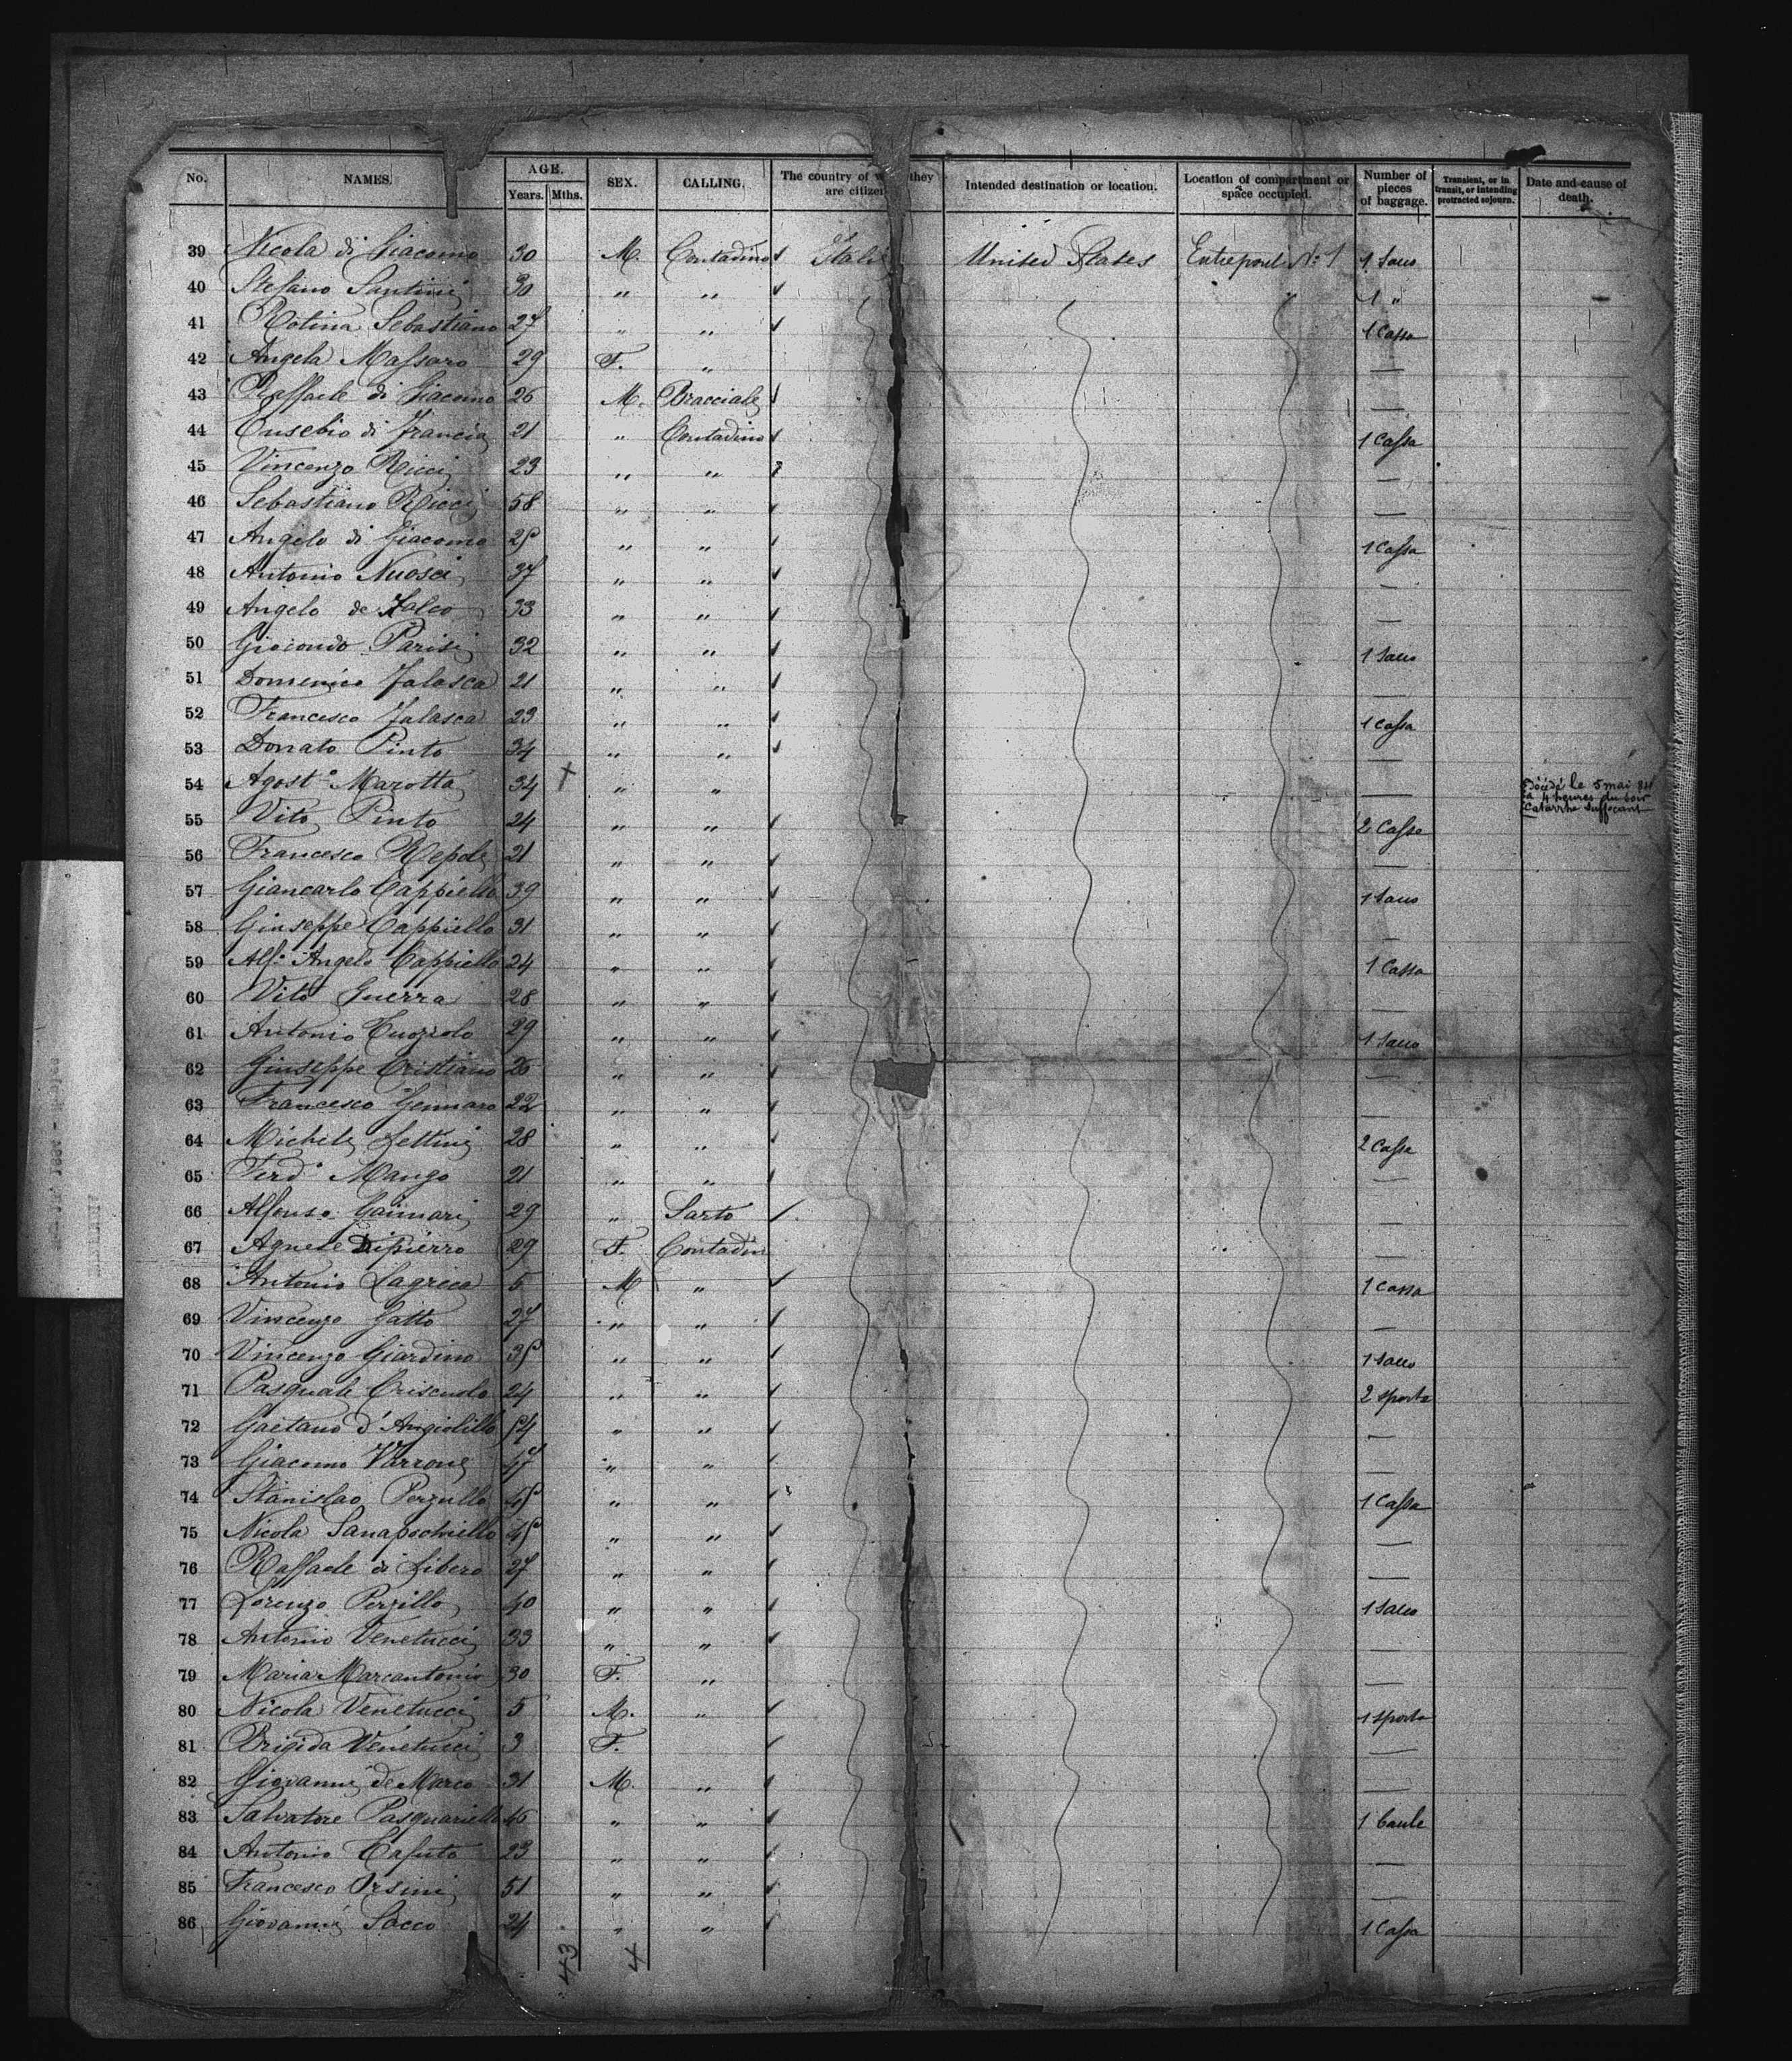 No. NAMES. AGE. Years. Mths. SEX. CALLING. The country of w they are citizen Intended destination or location. Location of compartment or space occupied. Number of pieces of baggage. Transient, or in transit, or intending protracted sojourn. Date and cause of death.
39 Nicola di Giacomo 30 M. Contadino Itali United States Entrepont No 1 1 Sacco
40 Stefano Santini 30 " " 1 "
41 Rotina Sebastiano 27 " " 1 Cassa
42 Angela Massaro 29 F. " —
43 Raffaele di Giacomo 26 M. Bracciale —
44 Eusebio di Francia 21 " Contadino 1 Cassa
45 Vincenzo Ricci 23 " " —
46 Sebastiano Ricci 58 " " —
47 Angelo di Giacomo 25 " " 1 Cassa
48 Antonio Nuosci 37 " " —
49 Angelo de Falco 33 " " —
50 Giocondo Parisi 32 " " 1 Sacco
51 Domenico Falasca 21 " " —
52 Francesco Falasca 23 " " 1 Cassa
53 Donato Pinto 34 " " —
54 Agost° Marotta 34 + " " — Décédé le 5 mai 84
à 4 heures du soir
Catarrhe suffocant
55 Vito Pinto 24 " " 2 Casse
56 Francesco Repole 21 " " —
57 Giancarlo Cappiello 39 " " 1 Sacco
58 Giuseppe Cappiello 31 " " —
59 Alf° Angelo Cappiello 24 " " 1 Cassa
60 Vito Guerra 28 " " —
61 Antonio Cuozzolo 29 " " 1 Sacco
62 Giuseppe Cristiano 26 " " —
63 Francesco Gennaro 22 " " —
64 Michele Lettini 28 " " 2 Casse
65 Ferd° Mango 21 " " —
66 Alfonso Gaimari 29 " Sarto —
67 Agnese Dipierro 29 F. Contadin —
68 Antonio Lagreca 5 M " 1 Cassa
69 Vincenzo Gatto 27 " " —
70 Vincenzo Giardino 35 " " 1 Sacco
71 Pasquale Criscuolo 24 " " 2 Sporte
72 Gaetano d'Angiolillo 54 " " —
73 Giacomo Varrone 47 " " —
74 Stanislao Perzullo 45 " " 1 Cassa
75 Nicola 45 " " —
76 Raffaele di Libero 27 " " —
77 Lorenzo Perzillo 40 " " 1 Sacco
78 Antonio Venetucci 33 " " —
79 Maria Marcantonio 30 F. " —
80 Nicola Venetucci 5 M. " 1 Sporta
81 Brigida Venetucci 3 F. —
82 Giovanni de Marco 31 M. " —
83 Salvatore Pasquariello 46 " " 1 Baule
84 Antonio Caputo 23 " " —
85 Francesco Orsini 51 " " —
86 Giovanni Sacco 24 " " 1 Cassa
43 4